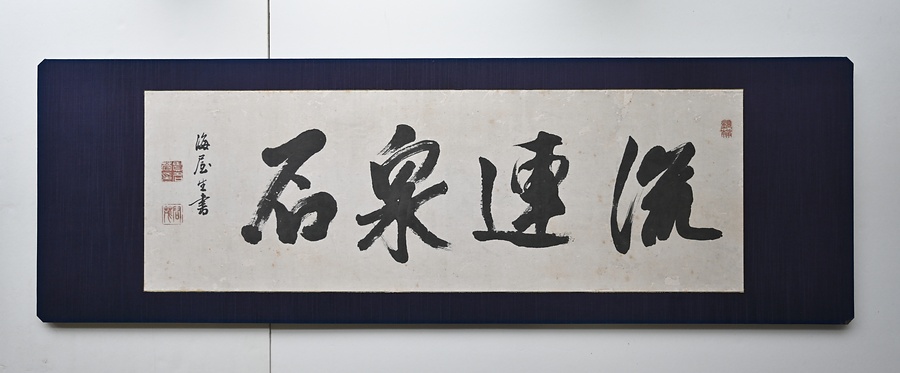 流連泉石
海屋生書